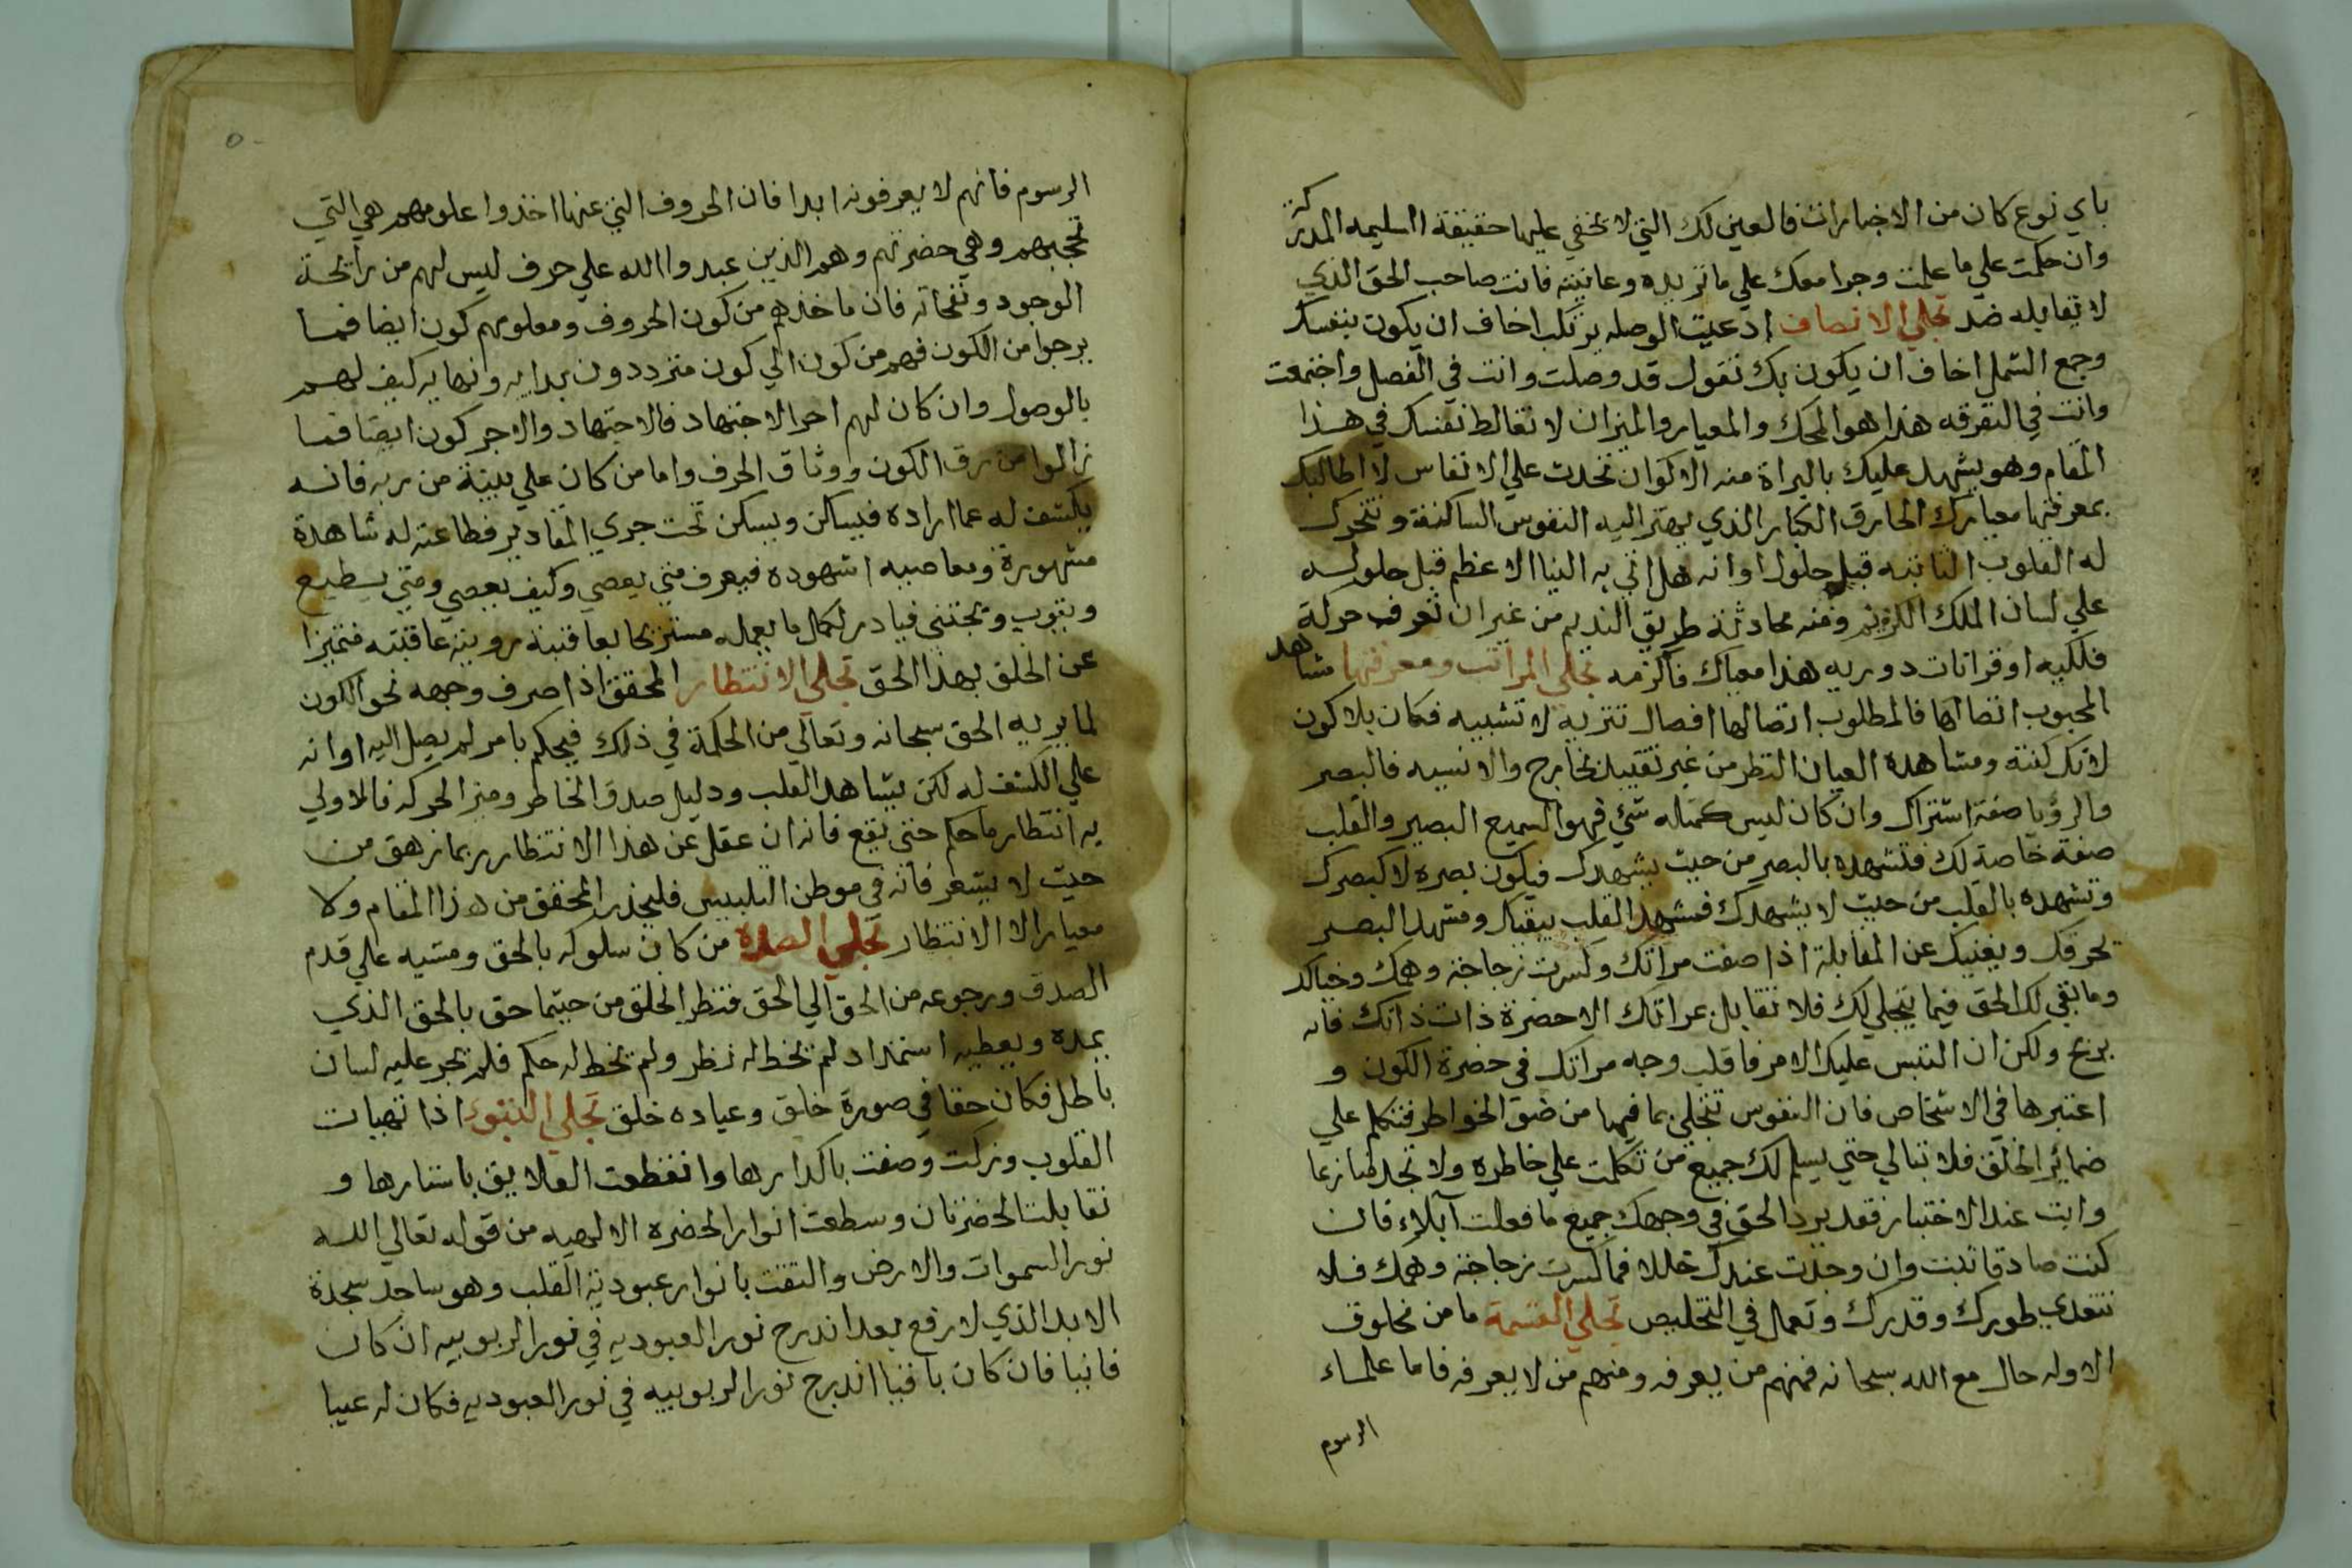 باي نوع كان من الاختبارات فالعين لك التي لا تخفي عليها حقيقة السليمه المدركة
وان حكمت علي ما علمت وجرا معك علي ما تريده وعاينته فانت صاحب الحق الذي
لا يقابله ضد تجلي الانصاف ادعيت الوصله بربك اخاف ان يكون بنفسك
وجمع الشمل اخاف ان يكون بك تقول قد وصلت وانت في الفصل واجتمعت
وانت في التفرقه هذا هو المحك والمعيار والميزان لا تغالط نفسك في هذا
المقام وهو يشهد عليك بالبراة منه الاكوان تحدث علي الانفاس لا اطالبك
بمعرفتها معيارك الخارق الكبار الذي يهتز اليه النفوس الساكنة وتتحرك
له القلوب الثابته قبل حلول اوانه هل اتي به النبا الاعظم قبل حلوله
علي لسان الملك الكريم ومنه محادثة طريق النديم من غير ان تعرف حركة
فلكيه او قرانات دوريه هذا معيارك فالزمه تجلي المراتب ومعرفتها مشاهد
المحبوب اتصالها فالمطلوب اتصالها افصال تنزيه لا تشبيه فكان بلا كون
لانك كنته ومشاهدة العيان النظر من غير تقييد بخارج والانسيه فالبصر
والرؤيا صفة اشتراك وان كان ليس كمثله شئ فهو السميع البصير والقلب
صفة خاصة لك فتشهده بالبصر من حيث يشهدك فيكون بصره لا كبصرك
وتشهده بالقلب من حيث لا يشهدك فمشهد القلب يبقيك ومشهد البصر
يحرقك ويفنيك عن المقابلة اذا صفت مراتك وكسرت زجاجة وهمك وخيالك
وما بقي لك الحق فيما يتجلي لك فلا تقابل بمراتك الا حضرة ذات ذاتك فانه
يربح ولكن ان التبس عليك الامر فاقلب وجه مراتك في حضرة الكون و
اعتبرها في الاشخاص فان النفوس تتجلي بما فيها من صور الخواطر فتكلم علي
ضمائر الخلق فلا تبالي حتي يسلم لك جميع من تكلمت علي خاطره ولا تجد منازعا
واثبت عند الاختبار فقد يرد الحق في وجهك جميع ما فعلت ابتلاء فان
كنت صادقا ثبت وان وجدت عندك خللا فما كسرت زجاجة وهمك فلا
تتعدي طورك وقدرك وتعمل في التخليص تجلي القسمة ما من مخلوق
الا وله حال مع الله سبحانه فمنهم من يعرفه ومنهم من لا يعرفه فاما علماء
الرسوم
الرسوم فانهم لا يعرفونه ابدا فان الحروف التي عنها اخذوا علومهم هي التي
تحجبهم وهي حضرتهم وهم الذين عبدوا الله علي حرف ليس لهم من رائحة
الوجود ونفحاته فان ماخذهم من كون الحروف ومعلومهم كون ايضا فما
برحوا من الكون فهم من كون الي كون مترددون بدايه ونهايه كيف لهم
بالوصول وان كان لهم اجر الاجتهاد فالاجتهاد والاجر كون ايضا فما
زالوا من رق الكون ووثاق الحرف واما من كان علي بينة من ربه فانه
يكشف له عما اراده فيساكن ويسكن تحت جري المقادير فطاعته له شاهدة
مشهورة ومعاصيه اشهوده فيعرف متي يعصي وكيف يعصي ومتي يطيع
ويتوب وتجتني فيادر لكمال ما يعمله مستريحا بعاقبة رويته عاقبته متميزا
عن الخلق بهذا الحق تجلي الانتظار المحقق اذا صرف وجهه نحو الكون
لما يريه الحق سبحانه وتعالي من الحكمة في ذلك فيحكم بامر لم يصل اليه اوانه
علي الكشف له لكن بشاهد القلب ودليل صدق الخاطر وميز الحركه فالاولي
به انتظار ما حكم حتي يقع فانه ان عقل عن هذا الانتظار ربما زهق من
حيث لا يشعر فانه في موطن التلبيس فليحذر المحقق من هذا المقام ولا
معيار الا الانتظار تجلي الصدق من كان سلوكه بالحق ومشيه علي قدم
الصدق ورجوعه من الحق الي الحق فتنظر الخلق من حيثما حق بالحق الذي
يمده ويعطيه استمداد لم تخط له نظر ولم تخط له حكم فلم تجر عليه لسان
باطل فكان حقا في صورة خلق وعباده خلق تجلي التهيؤ اذا تهيات
القلوب وزكت وصفت باكدارها وانقطعت العلايق باستارها و
تقابلت الحضرتان وسطعت انوار الحضره الالهيه من قوله تعالي الله
نور السموات والارض والتقت بانوار عبودية القلب وهو ساجد سجدة
الابد الذي لا رفع بعد اندرج نور العبوديه في نور الربوبيه ان كان
فانيا فان كان باقيا اندرج نور الربوبيه في نور العبوديه فكان له عيبا